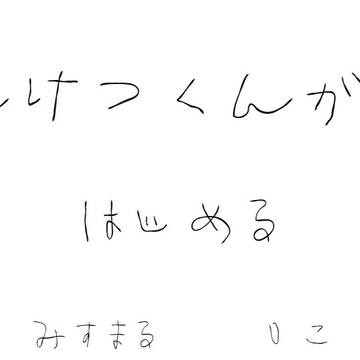 んけつくんが
はじめる
みすまる りこ